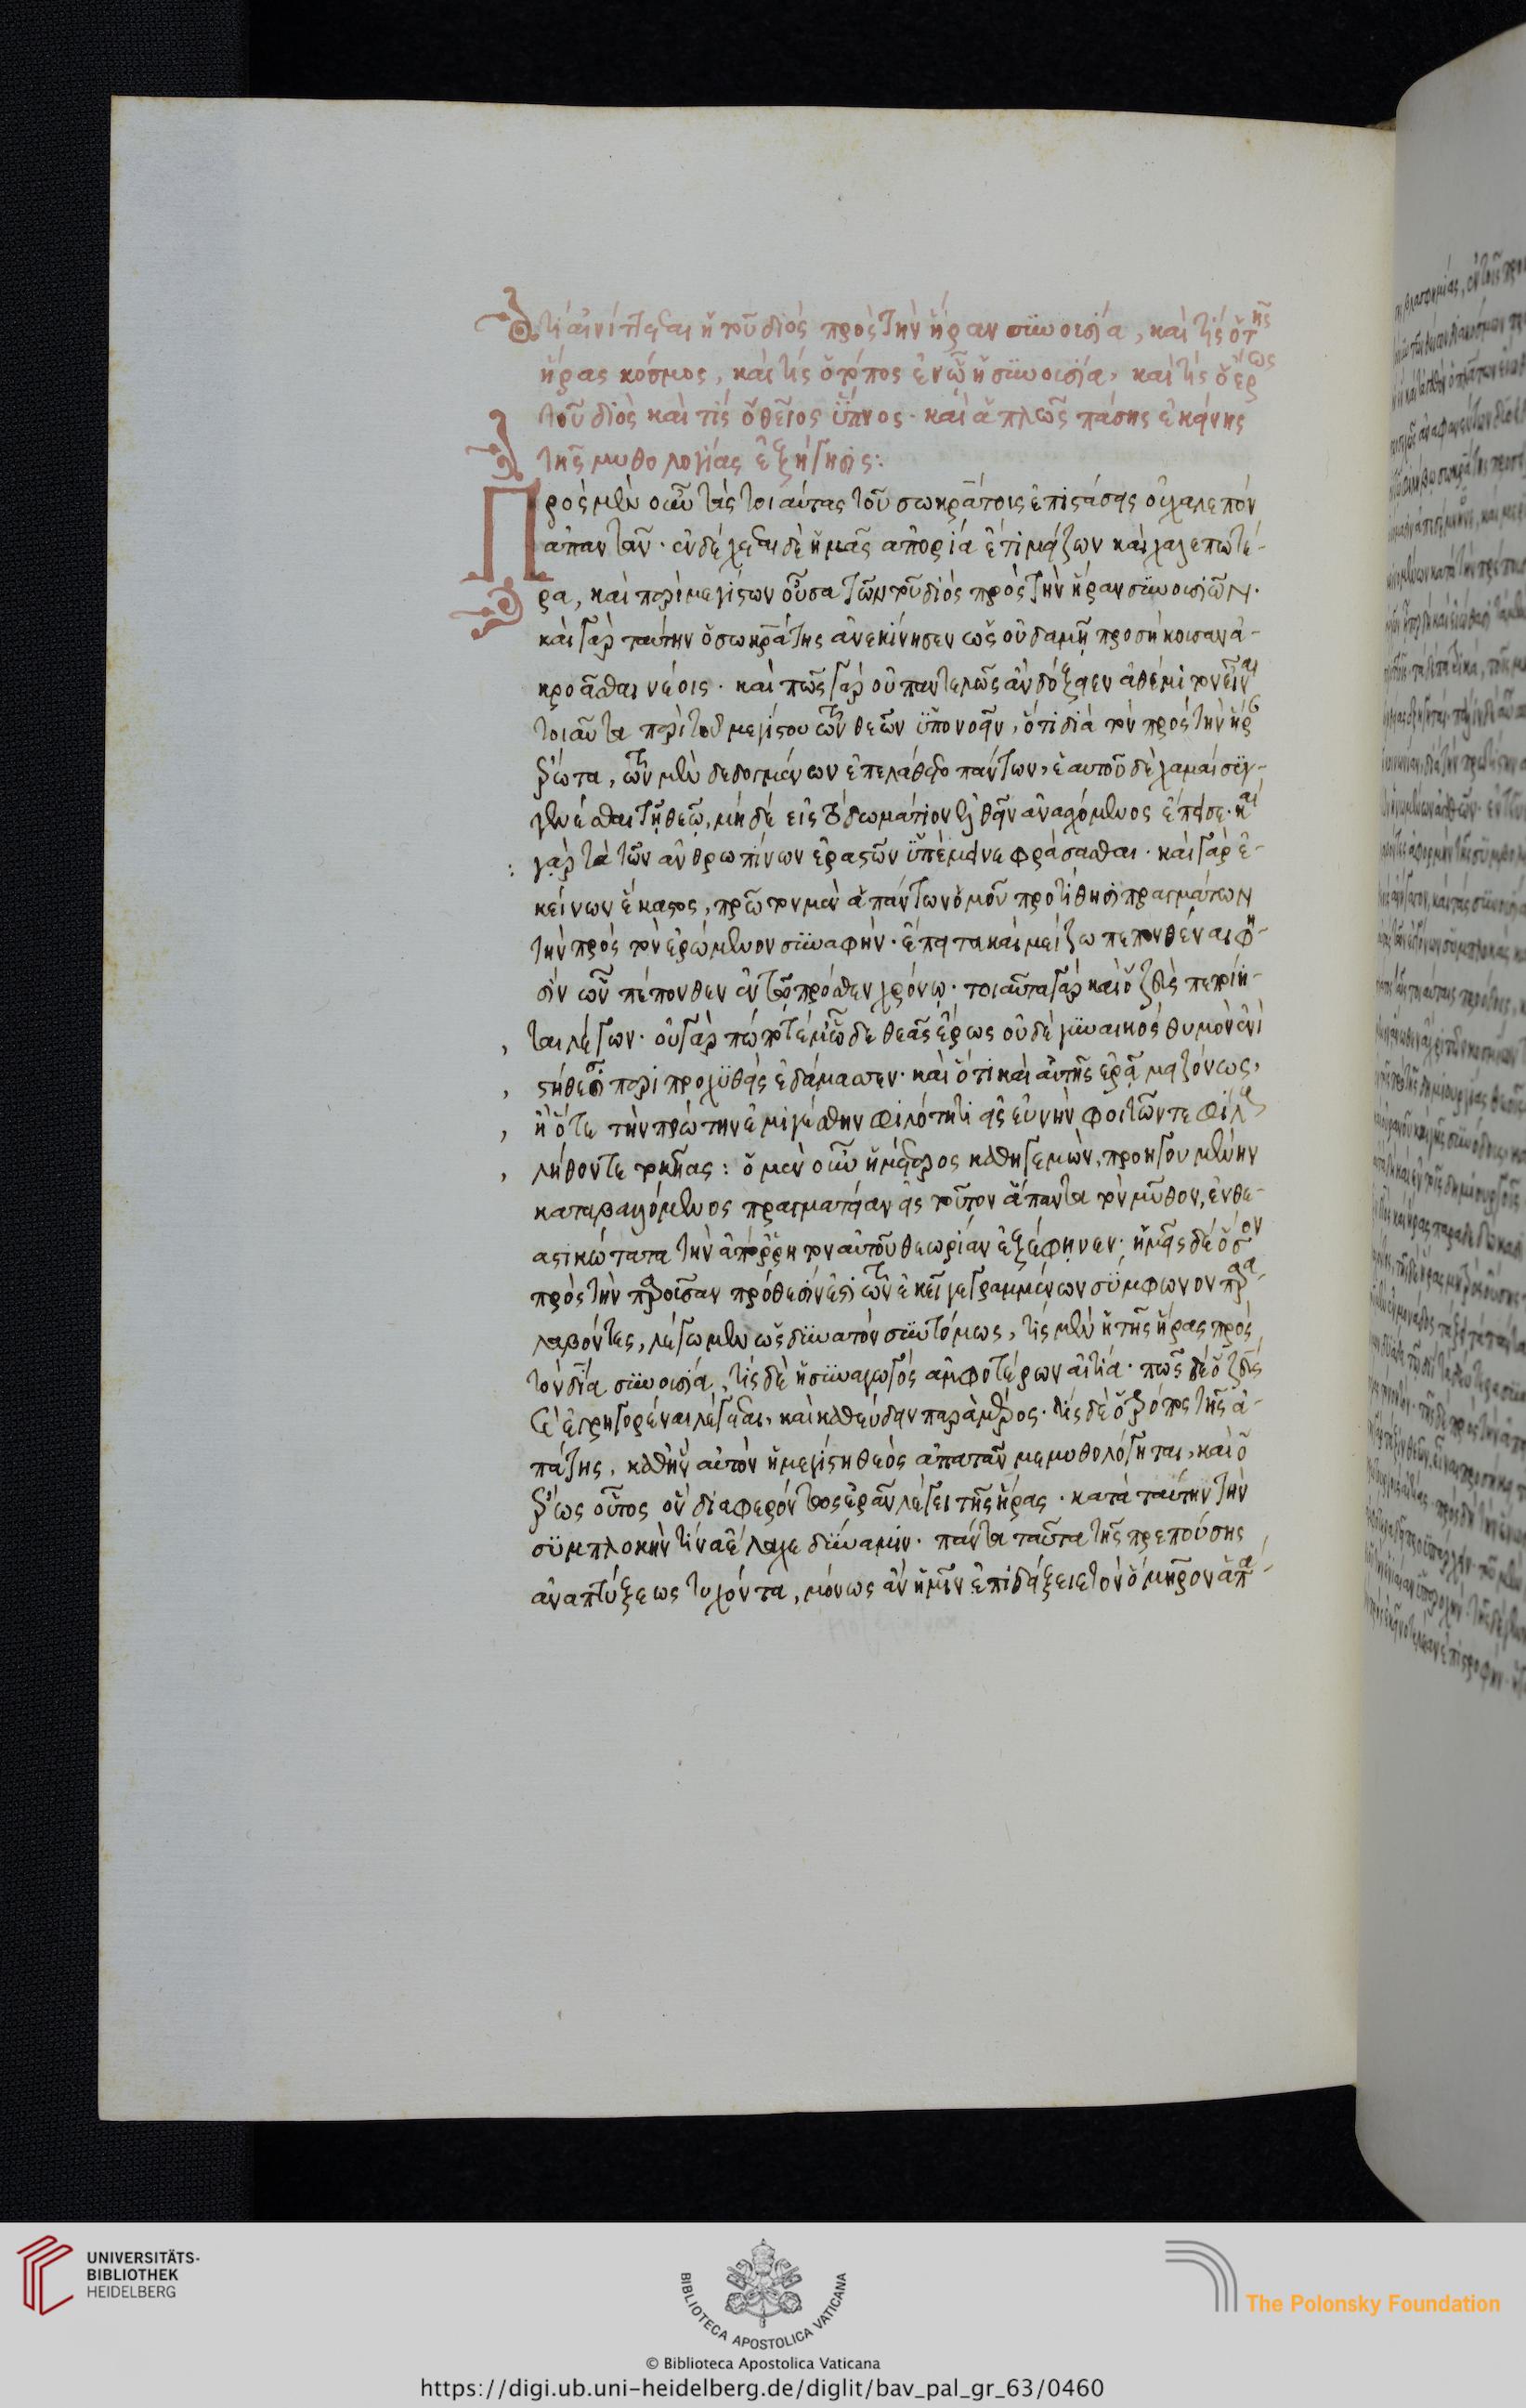 τί αἰνίττεται ἡ τοῦ διὸς πρὸς τὴν ἥραν συνουσία, καὶ τίς ὁ τῆς
ἥρας κόσμος, καὶ τίς ὁ τόπος ἐν ᾧ ἡ συνουσία, καὶ τίς ὁ ἔρως
τοῦ διὸς καὶ τίς ὁ θεῖος ὕπνος· καὶ ἁπλῶς πάσης ἐκείνης
τῆς μυθολογίας ἐξήγησις:
Πρὸς μὲν οὖν τὰς τοιαύτας τοῦ σωκράτους ἐπιστάσεις οὐ χαλεπὸν
ἀπαντᾶν· ἐνδέχεται δὲ ἡμᾶς ἀπορία ἔτι μείζων καὶ χαλεπωτέ-
ρα, καὶ περὶ μεγίστων οὖσα τῶν τοῦ διὸς πρὸς τὴν ἥραν συνουσιῶν.
καὶ γὰρ ταύτην ὁ σωκράτης ἀνεκίνησεν ὡς οὐδαμῇ προσήκουσαν ἀ-
κροᾶσθαι νέοις· καὶ πῶς γὰρ οὐ παντελῶς ἂν δόξειεν ἀθέμιτον εἶναι
τοιαῦτα περὶ τοῦ μεγίστου τῶν θεῶν ὑπονοεῖν, ὅτι διὰ τὸν πρὸς τὴν ἥρ
ἔρωτα, τῶν μὲν δεδογμένων ἐπελάθετο πάντων, ἑαυτοῦ δὲ χαμαὶ συγ-
γενέσθαι τῇ θεῷ, μηδὲ εἰς τὸ δωμάτιον ἐλθεῖν ἀνασχόμενος ἔπεισε· καὶ
γὰρ τὰ τῶν ἀνθρωπίνων ἐραστῶν ὑπέμεινε φράσασθαι· καὶ γὰρ ἐ-
κείνων ἕκαστος, πρῶτον μὲν ἁπάντων ὁμοῦ προτίθησι πραγμάτων
τὴν πρὸς τὸν ἐρώμενον συναφήν· ἔπειτα καὶ μείζω πεπονθέναι φη-
σὶν ὧν πέπονθεν ἐν τῷ πρόσθεν χρόνῳ· τοιαῦτα γὰρ καὶ ὁ ζεὺς πεποίη-
ται λέγων· οὐ γὰρ πώποτέ μ' ὧδε θεᾶς ἔρως οὐδὲ γυναικὸς θυμὸν ἐνὶ
στήθεσσι περιπροχυθεὶς ἐδάμασσεν· καὶ ὅτι καὶ αὐτῆς ἐρᾷ μειζόνως,
ἢ ὅτε τὴν πρώτην ἐμιγέσθην φιλότητι εἰς εὐνὴν φοιτῶντε φίλους
λήθοντε τοκῆας: ὁ μὲν οὖν ἡμέτερος καθηγεμών, προηγουμένην
καταβαλόμενος πραγματείαν εἰς τοῦτον ἅπαντα τὸν μῦθον, ἐνθε-
αστικώτατα τὴν ἀπόρρητον αὐτοῦ θεωρίαν ἐξέφηνεν· ἡμεῖς δὲ ὅσον
πρὸς τὴν παροῦσαν πρόθεσιν ἐστὶ τῶν ἐκεῖ γεγραμμένων σύμφωνον παρα-
λαβόντες, λέγωμεν ὡς δυνατὸν συντόμως, τίς μὲν ἡ τῆς ἥρας πρὸς
τὸν δία συνουσία, τίς δὲ ἡ συναγωγὸς ἀμφοτέρων αἰτία· πῶς δὲ ὁ ζεὺς
ἐγρηγορέναι λέγεται, καὶ καθεύδειν παρὰ μέρος· τίς δὲ ὁ τρόπος τῆς ἀ-
πάτης, καθ' ἣν αὐτὸν ἡ μεγίστη θεὸς ἀπατᾶν μεμυθολόγηται, καὶ ὁ
ἔρως οὗτος ὃν διαφερόντως ἐρᾶν λέγει τῆς ἥρας· κατὰ ταύτην τὴν
συμπλοκὴν τίνα ἔλαχε δύναμιν· πάντα ταῦτα τῆς πρεπούσης
ἀναπτύξεως τυχόντα, μόνως ἂν ἡμῖν ἐπιδείξειε τὸν ὅμηρον ἁπα-
UNIVERSITÄTS-
BIBLIOTHEK
HEIDELBERG
BIBLIOTECA APOSTOLICA VATICANA
The Polonsky Foundation
© Biblioteca Apostolica Vaticana
https://digi.ub.uni-heidelberg.de/diglit/bav_pal_gr_63/0460